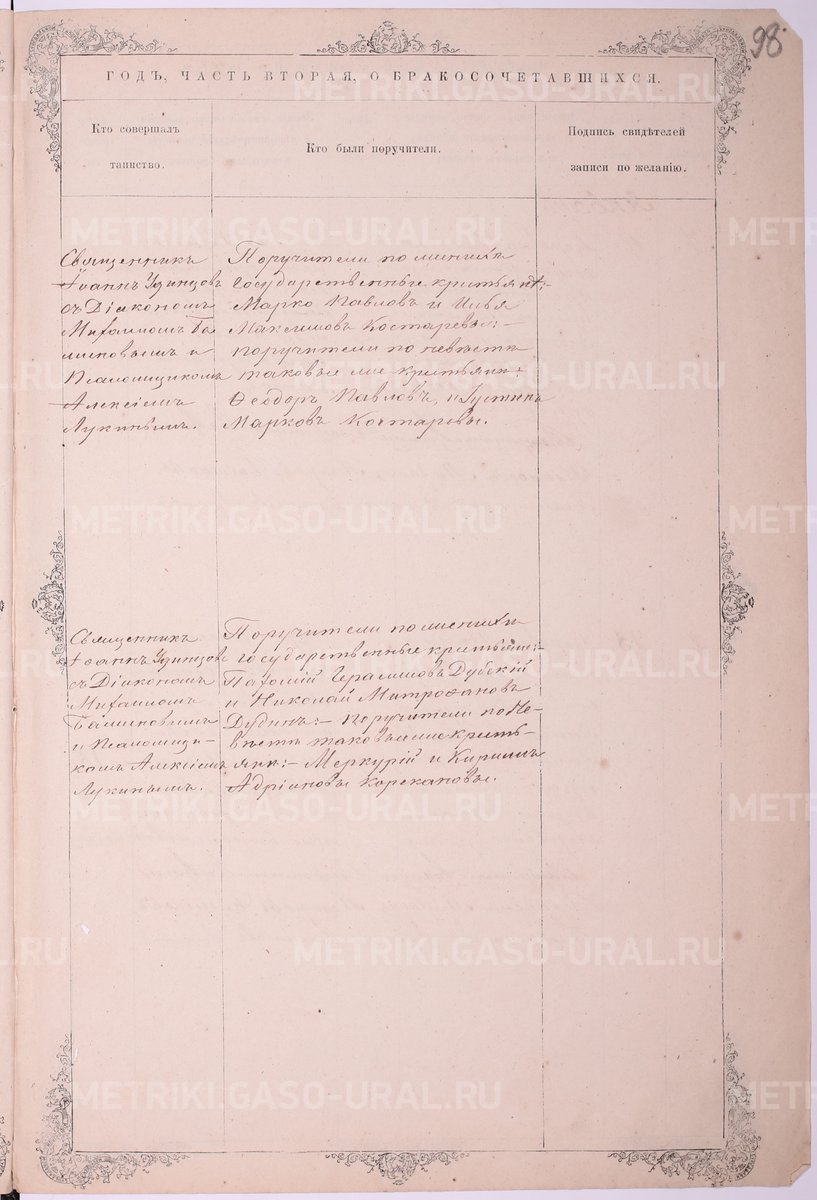 98.
ГОДЪ, ЧАСТЬ ВТОРАЯ, О БРАКОСОЧЕТАВШИХСЯ.
Кто совершалъ
таинство.
Кто были поручители.
Подпись свидѣтелей
записи по желанію.
Священникъ
Іоаннъ Удинцовъ
съ Діакономъ
Михаиломъ
и
Псаломщикомъ
Алексіемъ
Лукинымъ.
Поручители по женихѣ
государственные крестьяне:-
Марко Павловъ и Илья
Максимовъ Костаревы:-
поручители по невѣстѣ
таковые же крестьяне:
Ѳеодоръ Павловъ, и Густинъ
Марковъ Костаревы.
Священникъ
Іоаннъ Удинцовъ
съ Діакономъ
Михаиломъ
и Псаломщи-
комъ Алексіемъ
Лукинымъ.
Поручители по женихѣ
государственные крестьяне:-
Пахомій Герасимовъ Дубскій
и Николай Митрофановъ
Дубинъ:- поручители по Не-
вѣстѣ таковые же кресть-
яне:- Меркурій и Кириллъ
Адріановы
METRIKI.GASO-URAL.RU